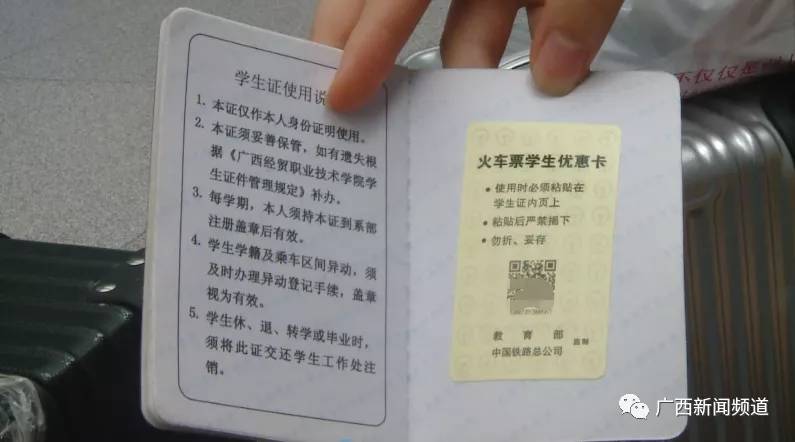 学生证使用说
1. 本证仅作本人身份证明使用。
2. 本证须妥善保管，如有遗失根
据《广西经贸职业技术学院学
生证件管理规定》补办。
3. 每学期，本人须持本证到系部
注册盖章后有效。
4. 学生学籍及乘车区间异动，须
及时办理异动登记手续，盖章
视为有效。
5. 学生休、退、转学或毕业时，
须将此证交还学生工作处注
销。
火车票学生优惠卡
• 使用时必须粘贴在
学生证内页上
• 粘贴后严禁揭下
• 勿折、妥存
教育部
中国铁路总公司
监制
不仅仅是
广西新闻频道